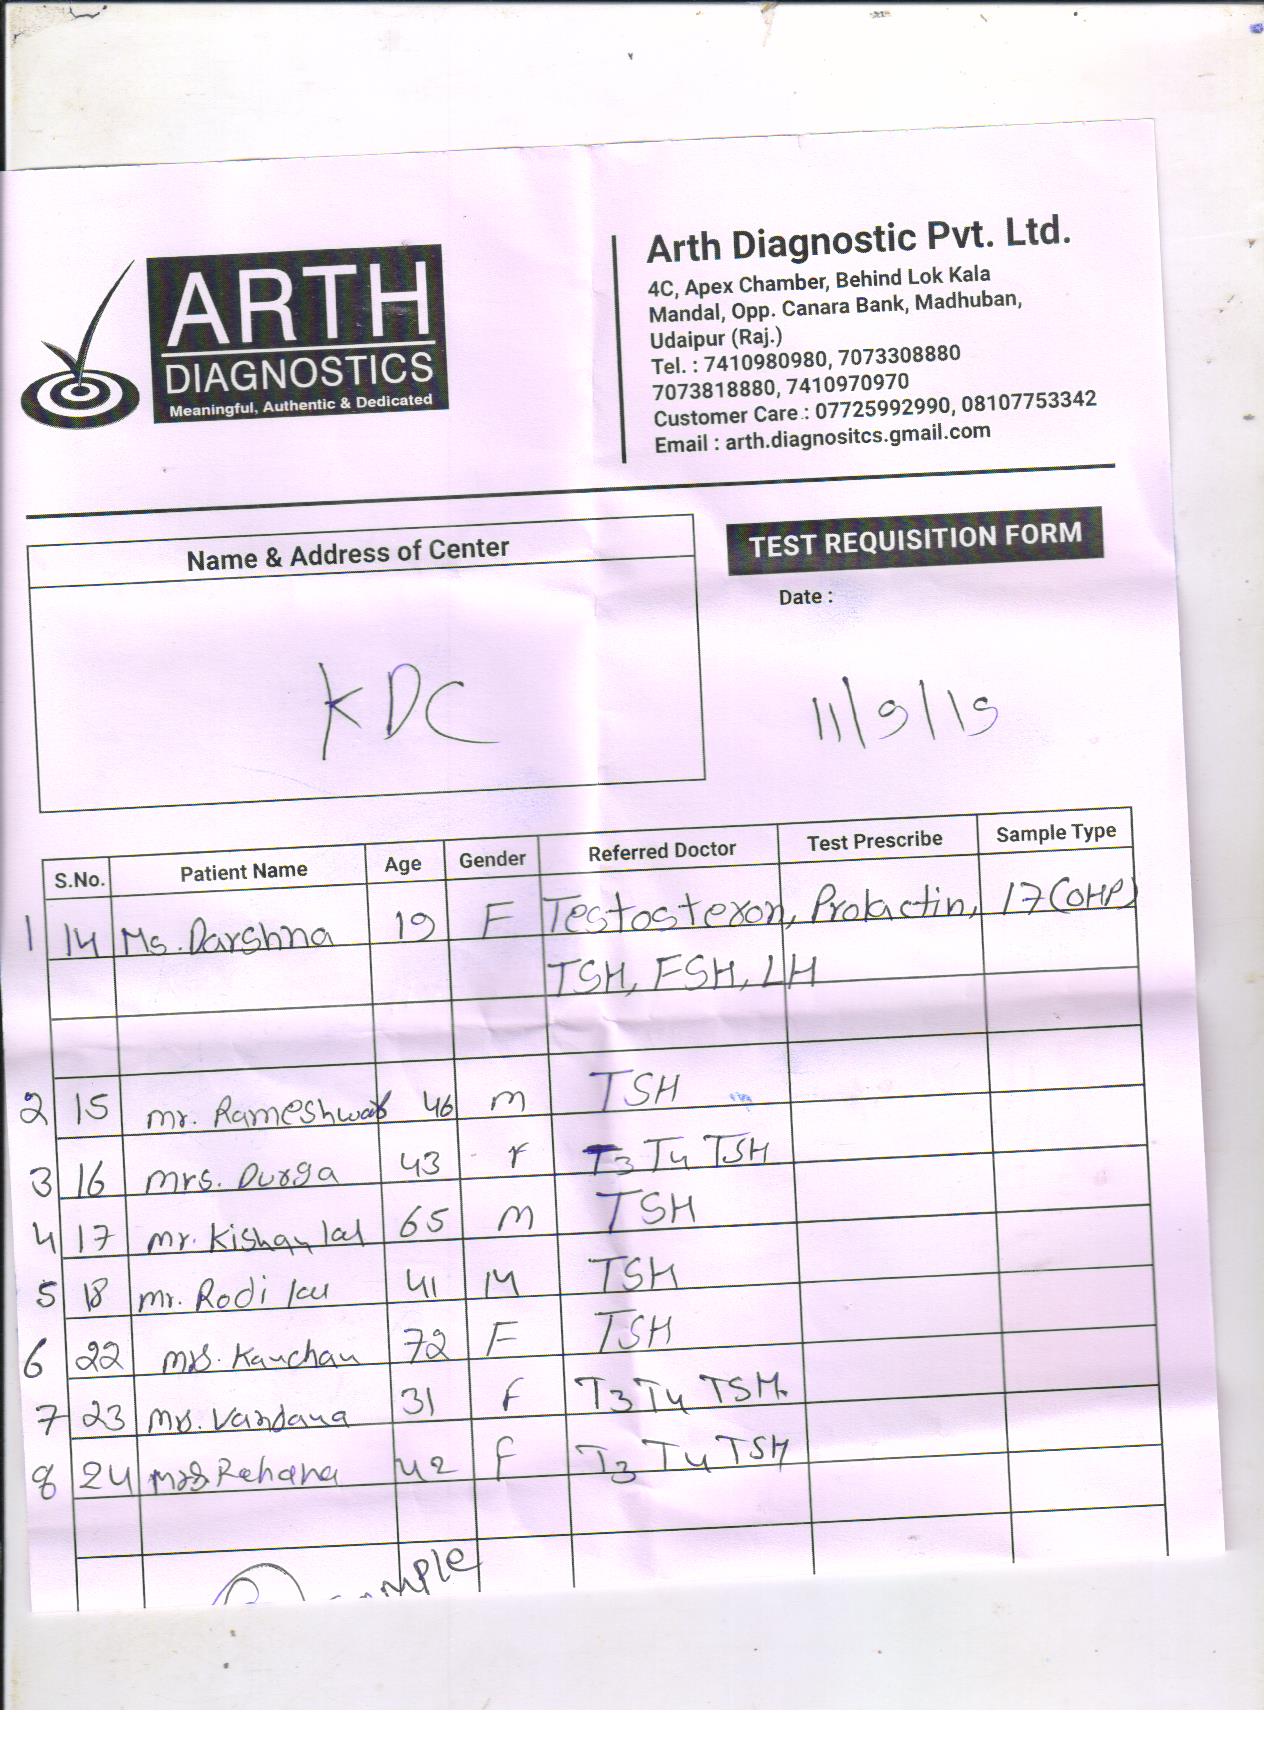 ARTH
DIAGNOSTICS
Meaningful, Authentic & Dedicated
Arth Diagnostic Pvt. Ltd.
4C, Apex Chamber, Behind Lok Kala
Mandal, Opp. Canara Bank, Madhuban,
Udaipur (Raj.)
Tel. : 7410980980, 7073308880
7073818880, 7410970970
Customer Care : 07725992990, 08107753342
Email : arth.diagnositcs.gmail.com
Name & Address of Center
KDC
TEST REQUISITION FORM
Date :
11/9/19
S.No. Patient Name Age Gender Referred Doctor Test Prescribe Sample Type
1 14 Ms. Darshna 19 F Testosteron, Prolactin, 17(OHP)
TSH, FSH, LH
2 15 mr. Rameshwar 46 m TSH
3 16 mrs. Durga 43 F T3 T4 TSH
4 17 mr. Kishan lal 65 m TSH
5 18 mr. Rodi lal 41 M TSH
6 22 mrs. Kanchan 72 F TSH
7 23 mrs. Vandana 31 F T3 T4 TSH.
8 24 mrs Rehana 42 F T3 T4 TSH